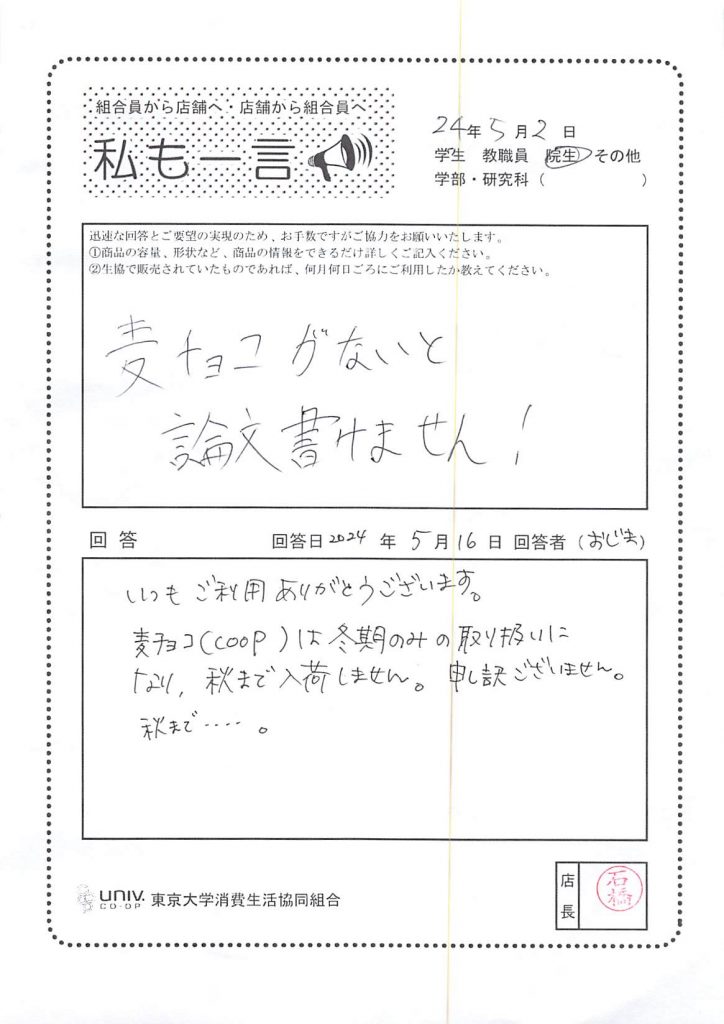 組合員から店舗へ・店舗から組合員へ
私も一言
24年5月2日
学生 教職員 院生 その他
学部・研究科（　　　　）
迅速な回答とご要望の実現のため、お手数ですがご協力をお願いいたします。
①商品の容量、形状など、商品の情報をできるだけ詳しくご記入ください。
②生協で販売されていたものであれば、何月何日ごろにご利用したか教えてください。
麦チョコがないと
論文書けません！
回答 回答日2024年5月16日 回答者（おじま）
いつもご利用ありがとうございます。
麦チョコ(COOP)は冬期のみの取り扱いに
なり、秋まで入荷しません。申し訳ございません。
秋まで‥‥‥。
UNIV. CO-OP 東京大学消費生活協同組合
店長
石橋